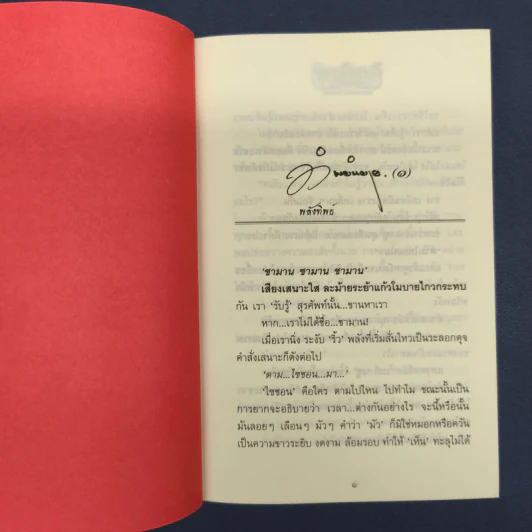 (๑)
พลังทิพย์
'ชามาน ชามาน ชามาน'
เสียงเสนาะใส ละม้ายระย้าแก้วโมบายไกวกระทบ
กัน เรา 'รับรู้' สุรศัพท์นั้น...ขานหาเรา
หาก...เราไม่ได้ชื่อ...ชามาน!
เมื่อเรานิ่ง ระงับ 'ริ้ว' พลังที่เริ่มสั่นไหวเป็นระลอกดุจ
คำสั่งเสนาะก็ดังต่อไป
'ตาม...ไซซอน...มา...'
'ไซซอน' คือใคร ตามไปไหน ไปทำไม ขณะนั้นเป็น
การยากจะอธิบายว่า เวลา...ต่างกันอย่างไร จะนี้หรือนั้น
มันลอยๆ เลือนๆ มัวๆ คำว่า 'มัว' ก็มิใช่หมอกหรือควัน
เป็นความขาวระยิบ งดงาม ล้อมรอบ ทำให้ 'เห็น' ทะลุไม่ได้
๑